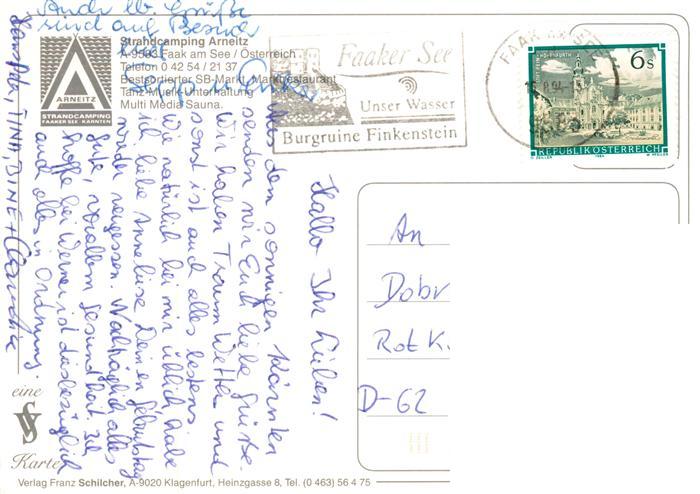 Auch lb. Grüße
sind auf Besuch
Strandcamping Arneitz
A-9583 Faak am See / Österreich
Telefon 0 42 54 / 21 37
Bestsortierter SB-Markt, Marktrestaurant
Tanz-Musik-Unterhaltung
Multi Media Sauna.
ARNEITZ
STRANDCAMPING
FAAKER SEE KÄRNTEN
Faaker See
Unser Wasser
Burgruine Finkenstein
FAAK AM SEE
6 S
REPUBLIK ÖSTERREICH
Hallo Ihr Lieben!
Aus dem sonnigen Kärnten
senden wir Euch liebe Grüße.
Wir haben Traum Wetter und
sonst ist auch alles bestens
Wie natürlich bei mir üblich habe
ich liebe Anneliese Deinen Geburtstag
wieder vergessen. Nachträglich alles
Gute, vorallem Gesundheit. Ich
hoffe bei Werner ist diesbezüglich
auch alles in Ordnung.
TINA, BINE + Claudia
An
Dobr
Rot K.
D-62
eine
Karte
Verlag Franz Schilcher, A-9020 Klagenfurt, Heinzgasse 8, Tel. (0 463) 56 4 75